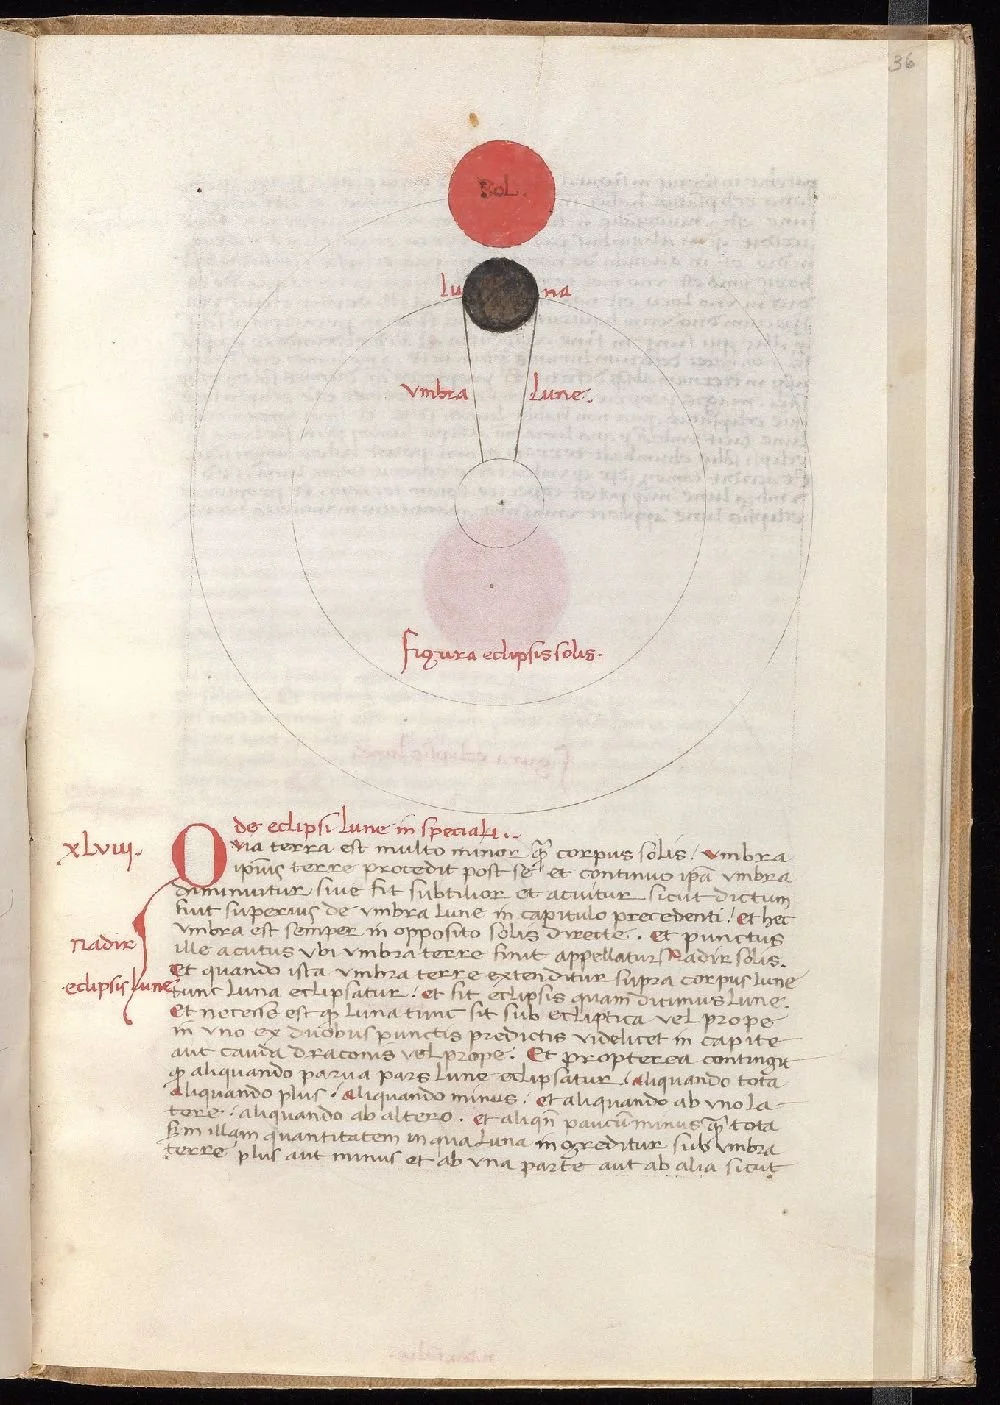 36
Sol.
luna
vmbra lune.
figura eclipsis solis.
de eclipsi lune in speciali.
xlviij.
Quia terra est multo minor q̃ corpus solis / vmbra
ipius terre procedit post se / et continuo ipa vmbra
diminuitur / siue fit subtilior et acuitur sicut dictum
fuit superius de vmbra lune in capitulo precedenti / et hec
vmbra est semper in opposito solis directe. Et punctus
ille acutus vbi vmbra terre finit appellatur Nadir solis.
nadir
Et quando ista vmbra terre extenditur supra corpus lune
eclipsis lune
tunc luna eclipsatur / et fit eclipsis quam dicimus lune.
Et necesse est q̃ luna tunc sit sub ecliptica vel prope
in vno ex duobus punctis predictis videlicet in capite
aut cauda draconis vel prope. Et propterea contingit
q̃ aliquando parua pars lune eclipsatur / aliquando tota
aliquando plus / aliquando minus / et aliquando ab vno la-
tere / aliquando ab altero. et aliqñ paucũ minus q̃ tota
scm illam quantitatem in qua luna ingreditur sub vmbra
terre plus aut minus et ab vna parte aut ab alia sicut